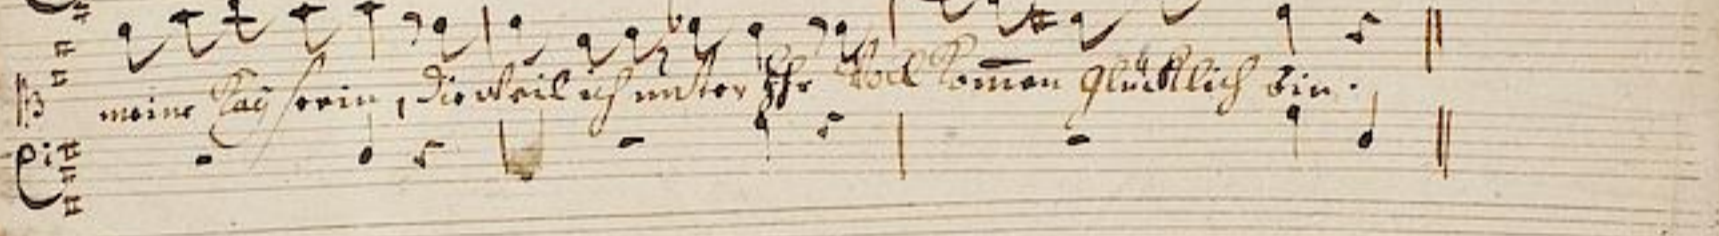 meine Kaÿserin, dieweil ich unter Ihr Vollkom̅en glücklich bin.